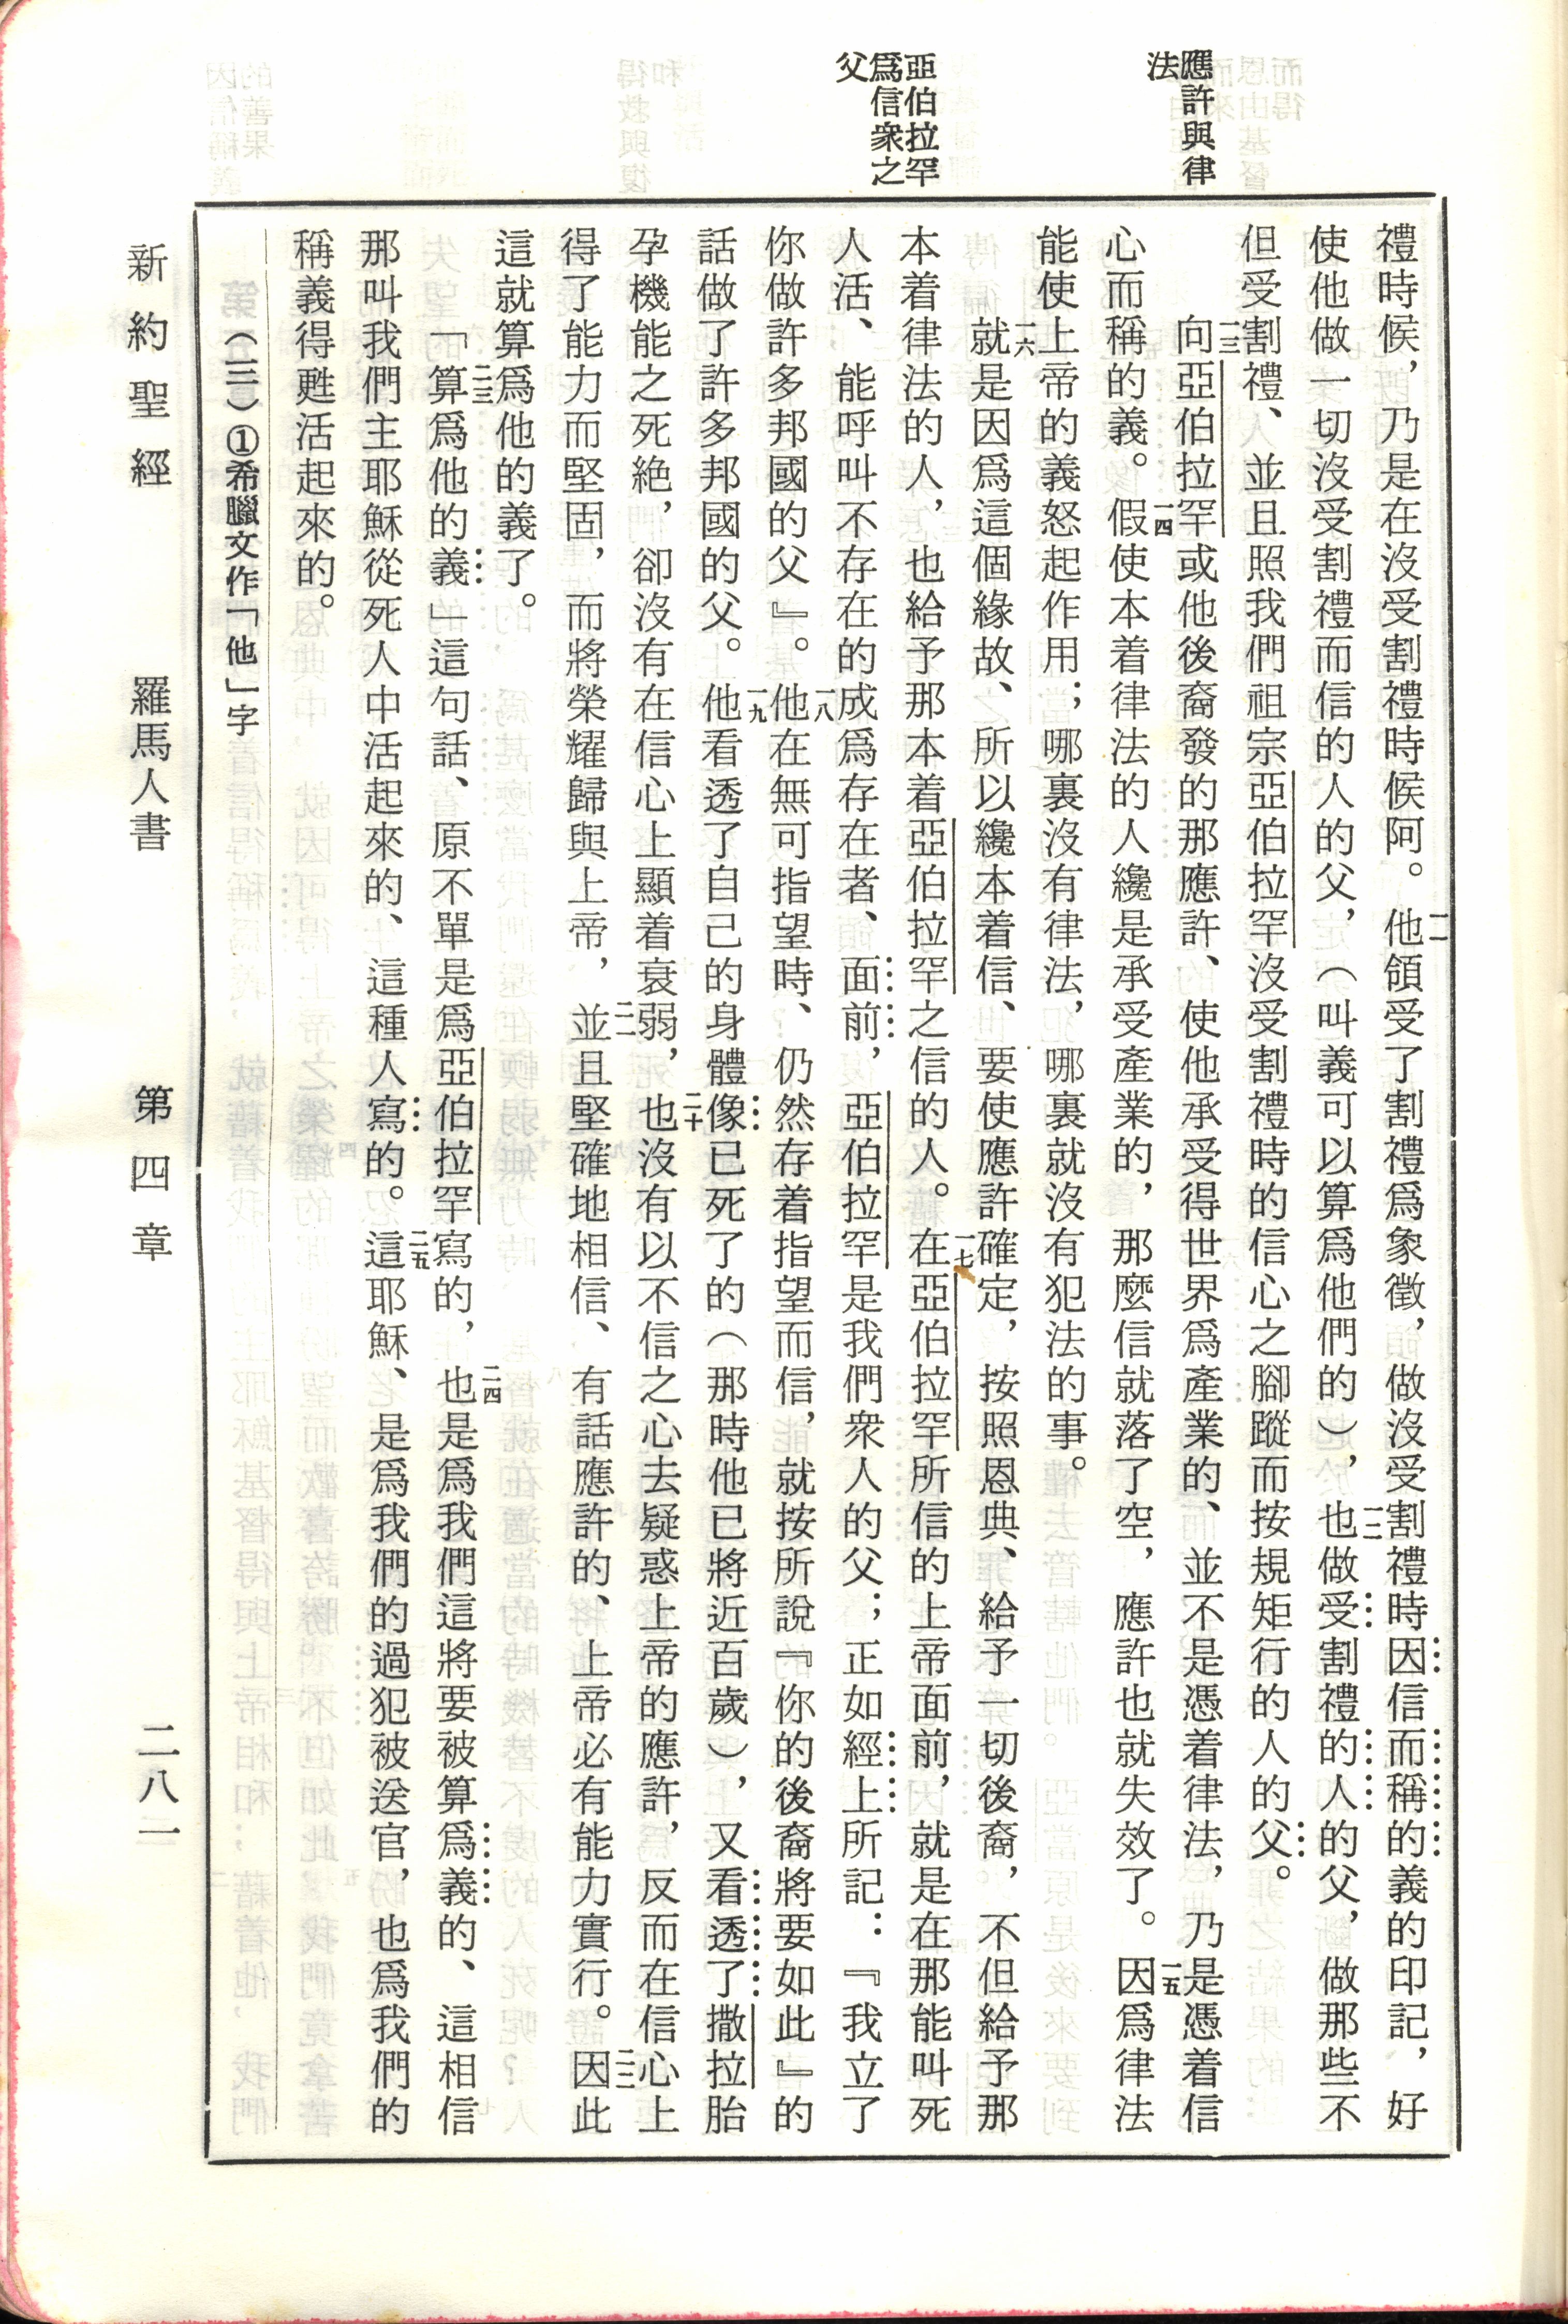 應許與律
法
亞伯拉罕
爲信衆之
父
禮時候，乃是在沒受割禮時候阿。一一他領受了割禮爲象徵，做沒受割禮時因信而稱的義的印記，好
使他做一切沒受割禮而信的人的父，（叫義可以算爲他們的），一二也做受割禮的人的父，做那些不
但受割禮、並且照我們祖宗亞伯拉罕沒受割禮時的信心之腳蹤而按規矩行的人的父。
一三向亞伯拉罕或他後裔發的那應許、使他承受得世界爲產業的、並不是憑着律法，乃是憑着信
心而稱的義。一四假使本着律法的人纔是承受產業的，那麼信就落了空，應許也就失效了。一五因爲律法
能使上帝的義怒起作用；哪裏沒有律法，哪裏就沒有犯法的事。
一六就是因爲這個緣故、所以纔本着信、要使應許確定，按照恩典、給予一切後裔，不但給予那
本着律法的人，也給予那本着亞伯拉罕之信的人。一七在亞伯拉罕所信的上帝面前，就是在那能叫死
人活、能呼叫不存在的成爲存在者、面前，亞伯拉罕是我們衆人的父；正如經上所記：『我立了
你做許多邦國的父』。一八他在無可指望時、仍然存着指望而信，就按所說『你的後裔將要如此』的
話做了許多邦國的父。一九他看透了自己的身體像已死了的（那時他已將近百歲），又看透了撒拉胎
孕機能之死絕，卻沒有在信心上顯着衰弱，二十也沒有以不信之心去疑惑上帝的應許，反而在信心上
得了能力而堅固，而將榮耀歸與上帝，二一並且堅確地相信、有話應許的、上帝必有能力實行。二二因此
這就算爲他的義了。
二三「算爲他的義」這句話、原不單是爲亞伯拉罕寫的，二四也是爲我們這將要被算爲義的、這相信
那叫我們主耶穌從死人中活起來的、這種人寫的。二五這耶穌、是爲我們的過犯被送官，也爲我們的
稱義得甦活起來的。
（一三）①希臘文作「他」字
新約聖經　羅馬人書　第四章　二八一